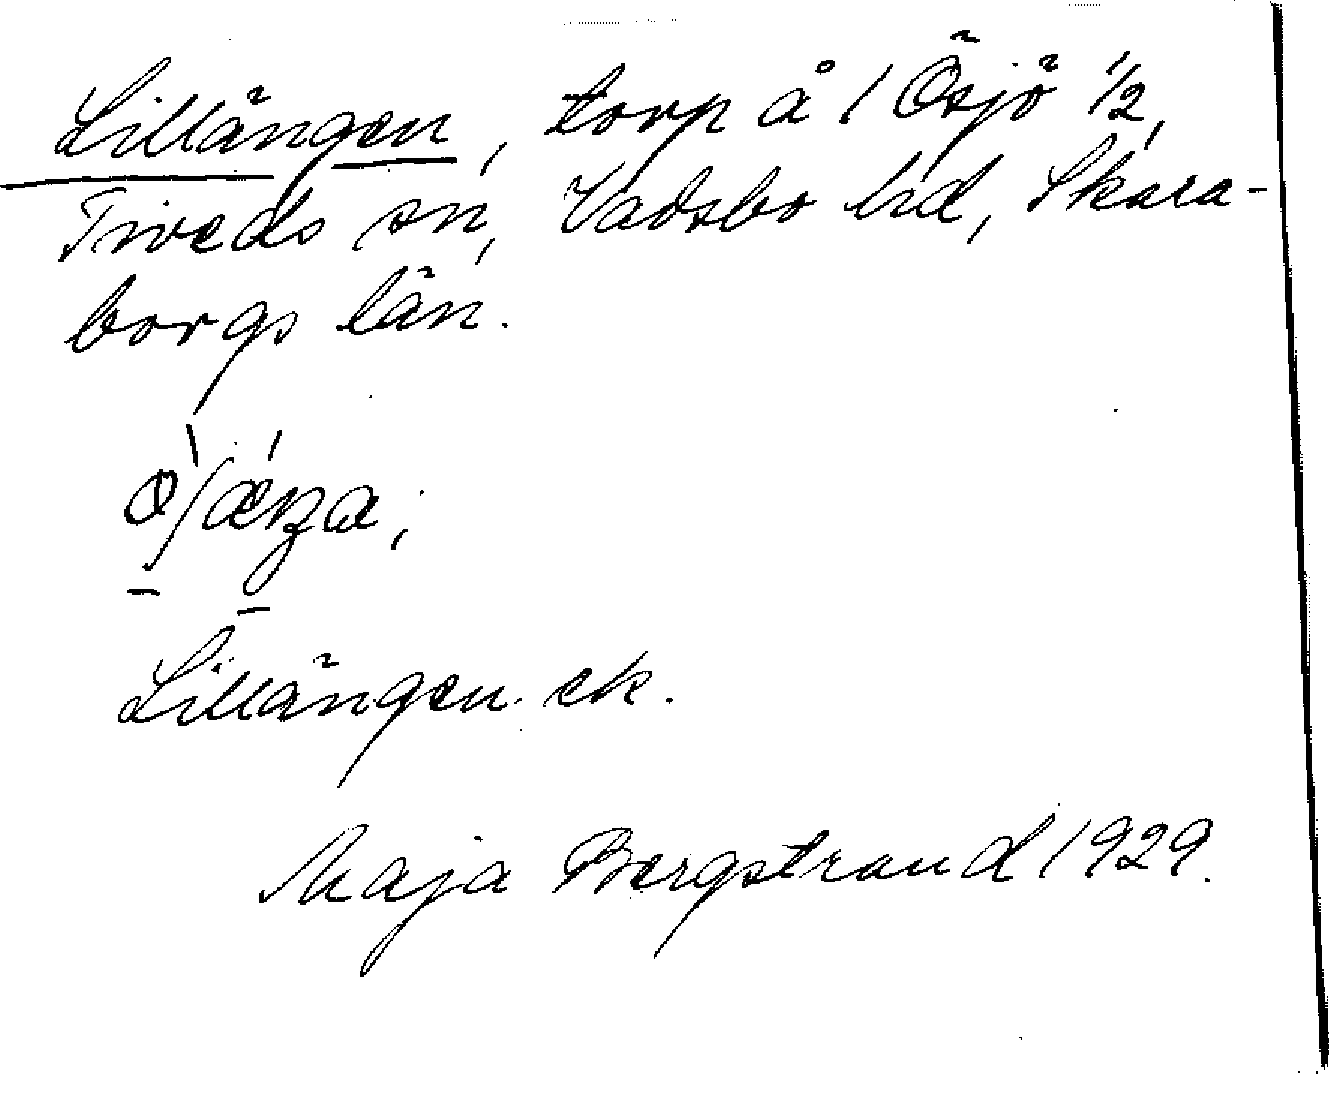 Lillängen, torp å 1 Ösjö 1/2,
Tiveds sn, Vadsbo hd, Skara-
borgs län.
Lillängen. ek.
Maja Bergstrand 1929.